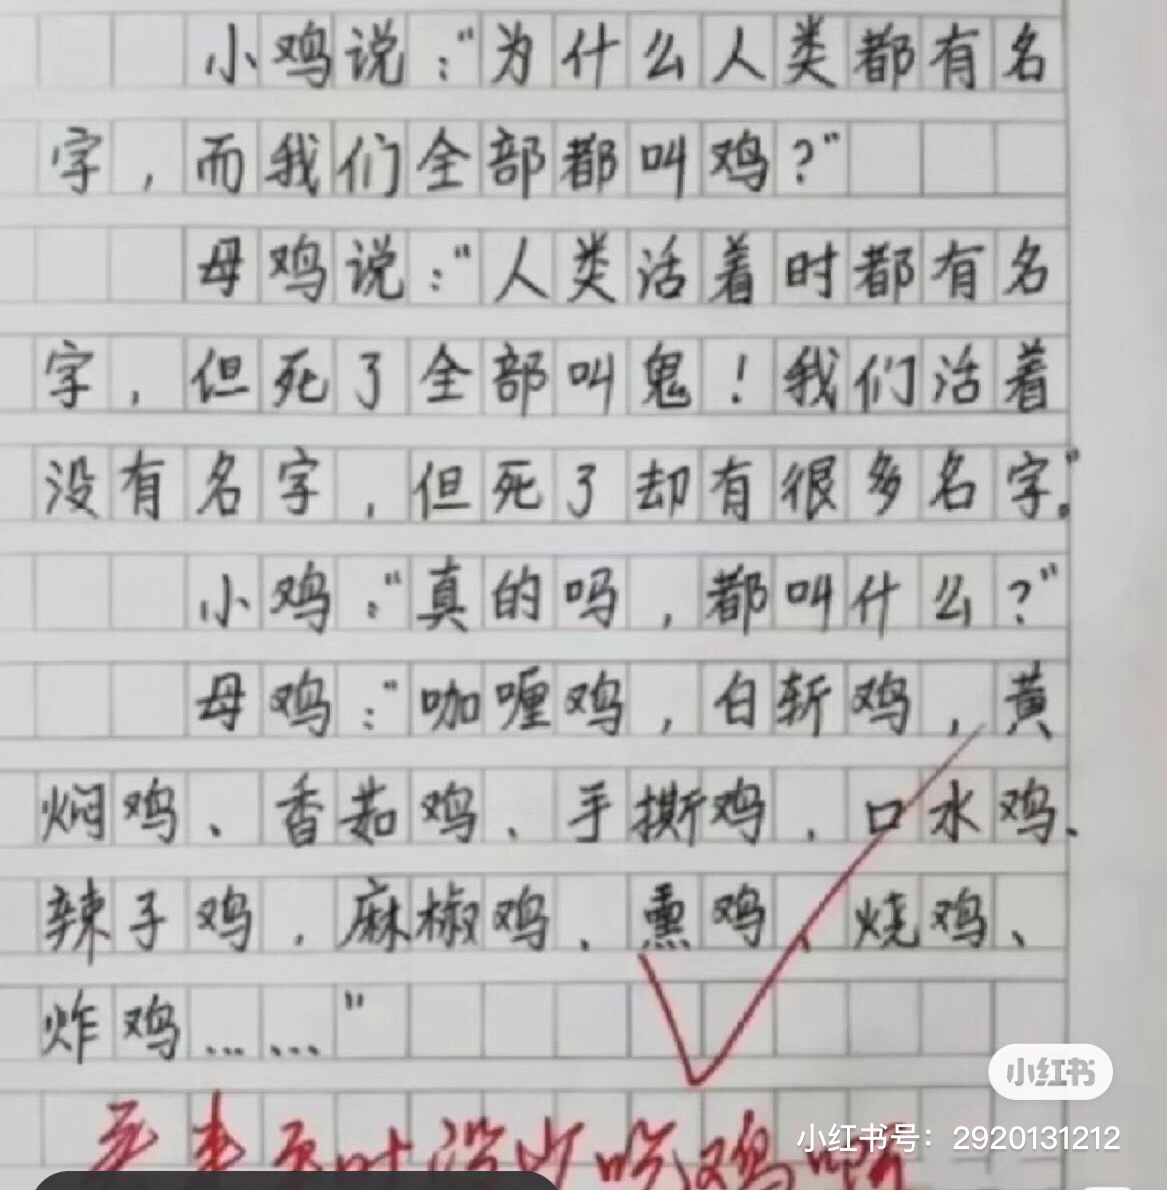 小鸡说："为什么人类都有名
字，而我们全部都叫鸡？"
母鸡说："人类活着时都有名
字，但死了全部叫鬼！我们活着
没有名字，但死了却有很多名字。"
小鸡："真的吗，都叫什么？"
母鸡："咖喱鸡，白斩鸡，黄
焖鸡、香菇鸡、手撕鸡、口水鸡、
辣子鸡，麻椒鸡、熏鸡、烧鸡、
炸鸡……"
没少吃鸡啊
小红书
小红书号：2920131212